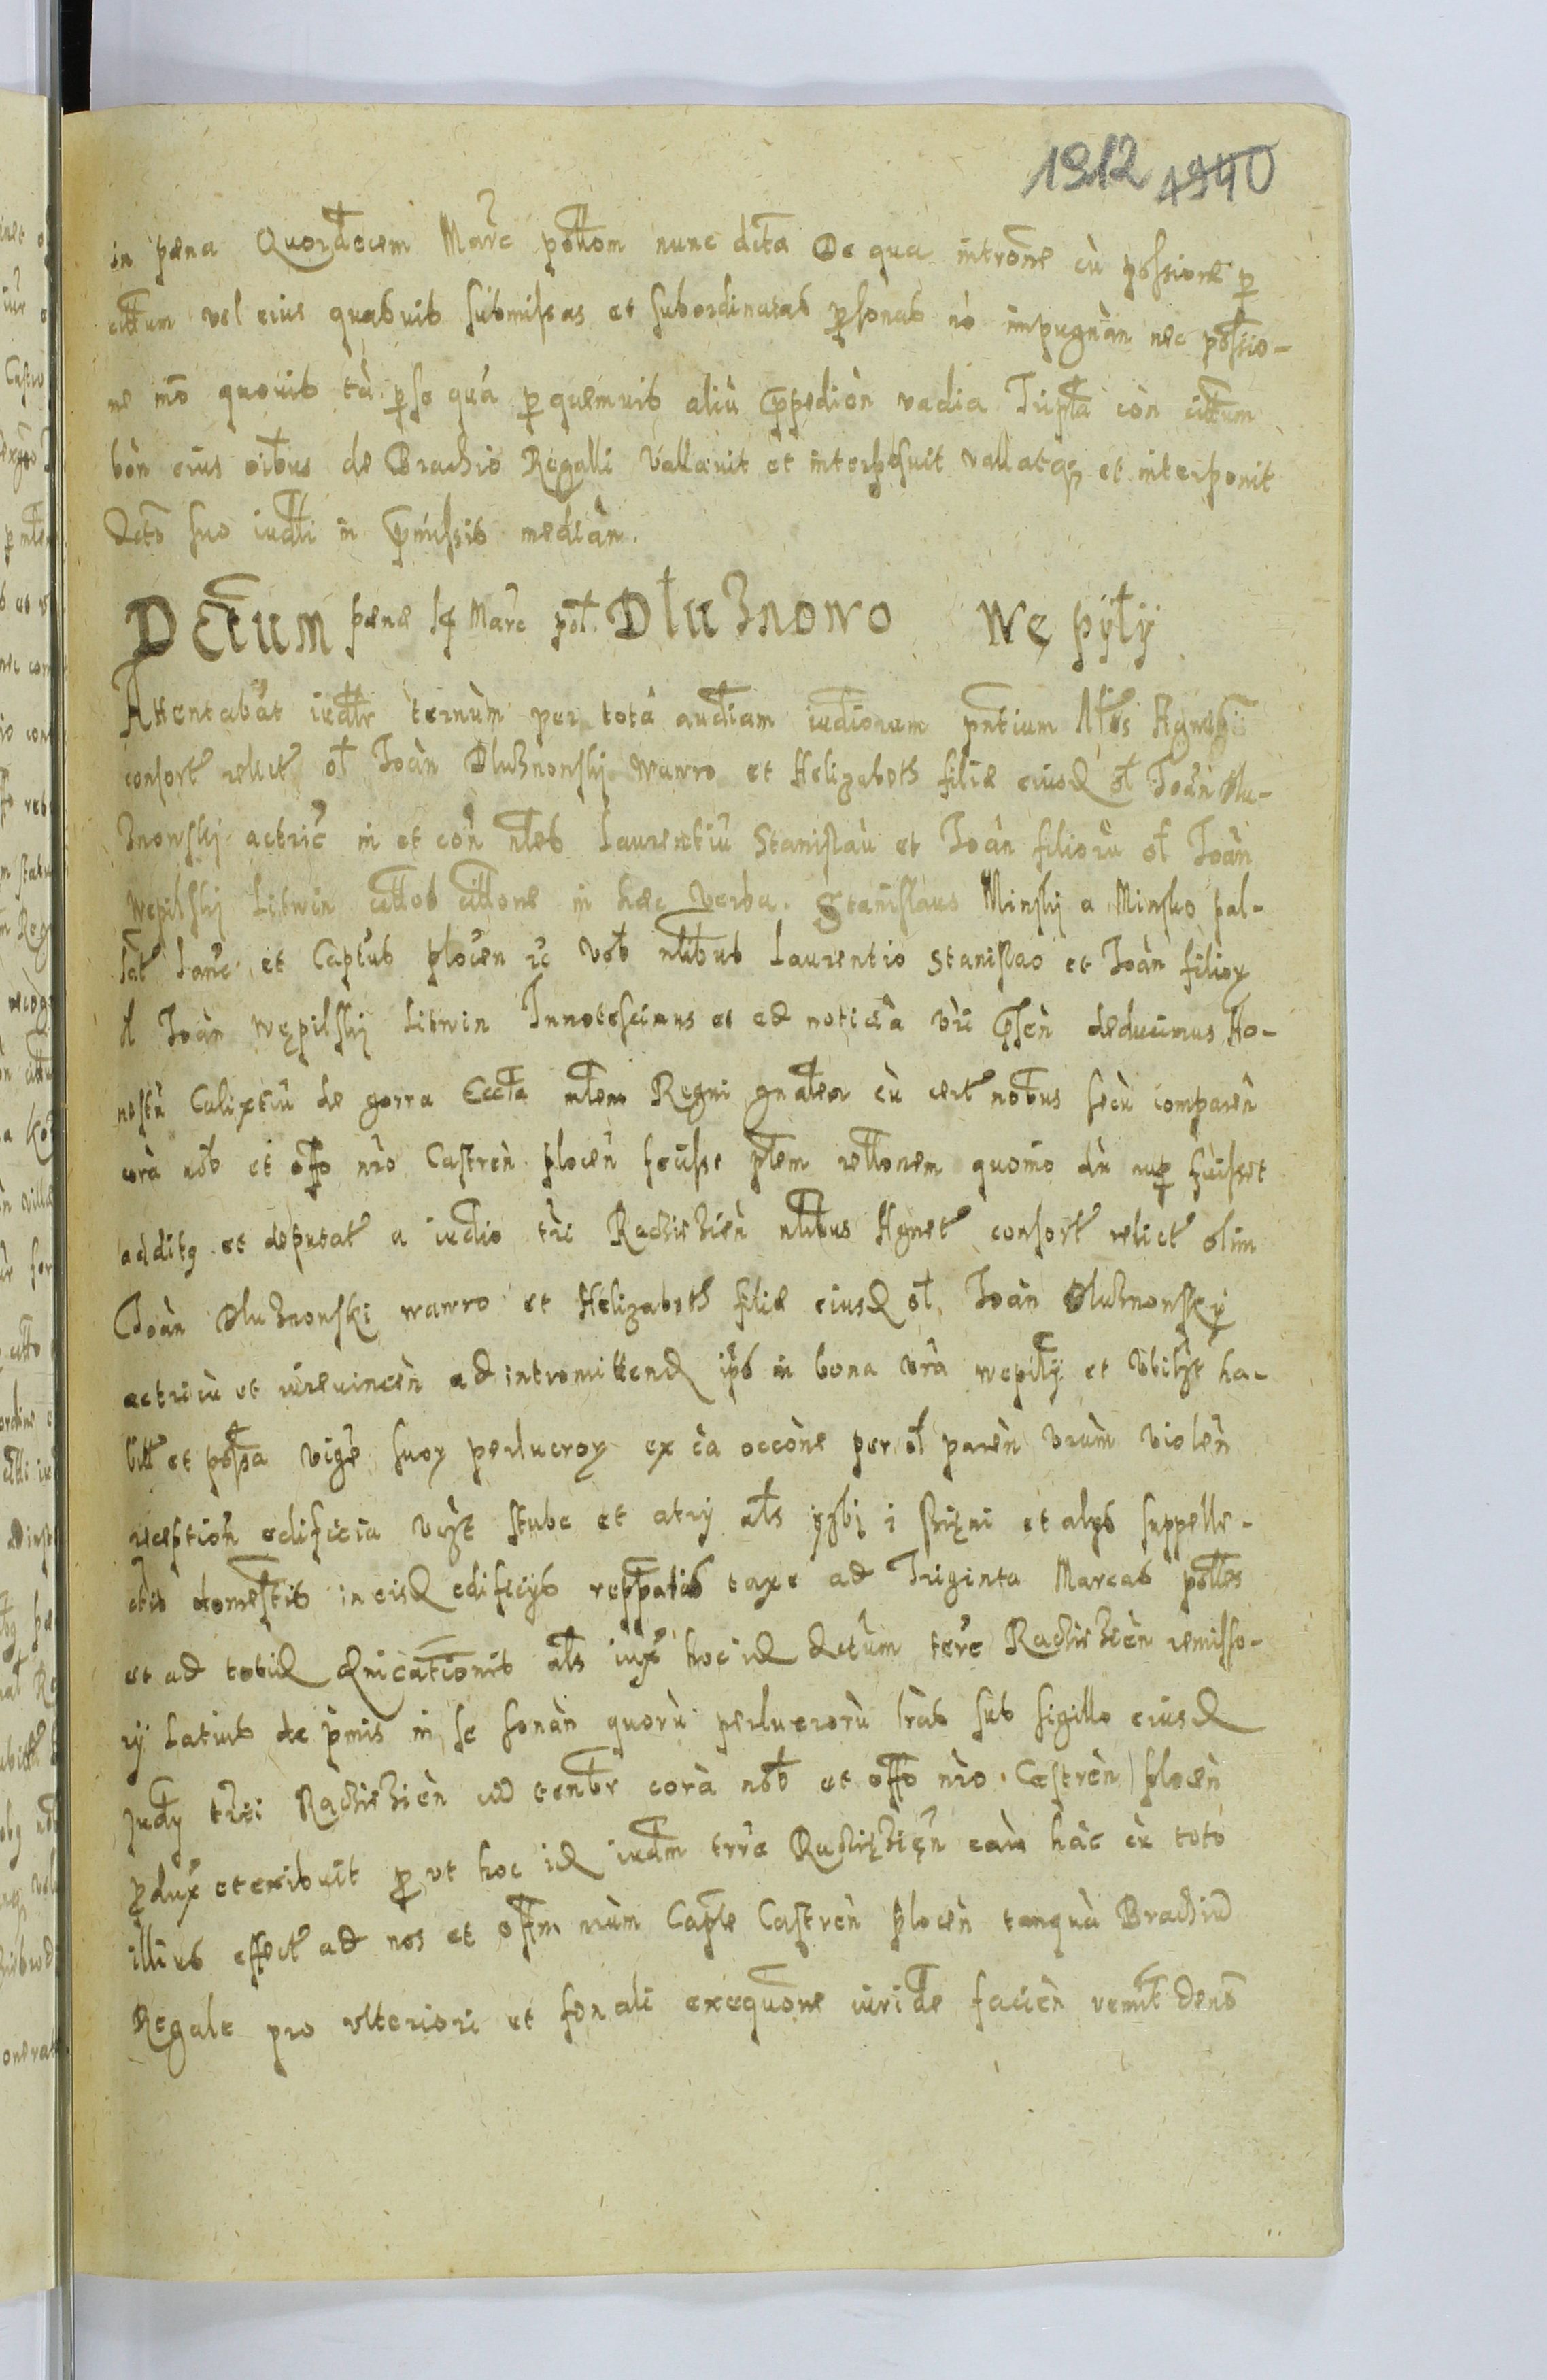 1912 1940
in pæna Quordecem Marc pollom nunc dcta De qua introne cu possione p
cittum vel eius quasuis submissas et subordinatas psonas no impugnan nec possio-
ne mo quouis ta pse qua p quemuis aliu ppedion vadia Tripla con cittum
bon eius oibus de Brachio Regalli Vallauit et interposuit vallatq et interponit
Dcto suo iudli in pmissis median.
DEctum pæne 14 Marc pol. Dluznowo We pyly
Attentabat iudlr ternum per tota audiam iudiorum pntium
consort relict ol Joan Dluznonskj Wawro et Helizabeth filiæ eiusd ol Joan Dlu-
znowskj actric in et con nles Laurentiu Stanislau et Joan filioru ol Joan
Wepilskj Litwin cittos cittone in hæc verba. Stanislaus Minskj a Minsko pal-
lat Lanc et Captus plocen rc Vob nlibus Laurentio Stanislao et Joan filiox
ol Joan Wepilskj Litwin Innotescimus et ad noticia vri psen deducimus Ho-
nestu Calixtiu de gorra Eccla mlem Regni gnalem cu cert nobus secu comparen
cora nob et offo nro Castren plocen fecisse plem rellonem quomo du nup fuisset
additq et deputat a iudio tri Rachiezien nlibus Hgnet consort relict olim
Joan Dluznonski wawro et Helizabeth filiæ eiusd ol Joan Dluznonskj
actriciu et iurevincen ad intromittend ips in bona vra wepily et vbilyt ha-
bitt et possa vige suox perlucrox ex ea occone per ol paren vrum violen
reception edificia vizt stube et atry als yzbi i sieni et alys suppelle-
ctis domestis in eisd edificiis reppatis taxe ad Triginta Marcas polles
et ad totid als iux hoc id dctum terc Rachiezien remisso-
ry Latius de pmis in se sonan quoru perlucroru lras sub sigillo eiusd
Judy trri Rachiezien vid tenbr cora nob et offo nro Castren plocen
pdux etexibuit put hoc id iudm trre Rachiezien eam hac cu toto
illius effect ad nos et offm nrum Caple Castren plocen tanqua Brachiu
Regale pro vlteriori et fonali exequone iuride facien remit Dens